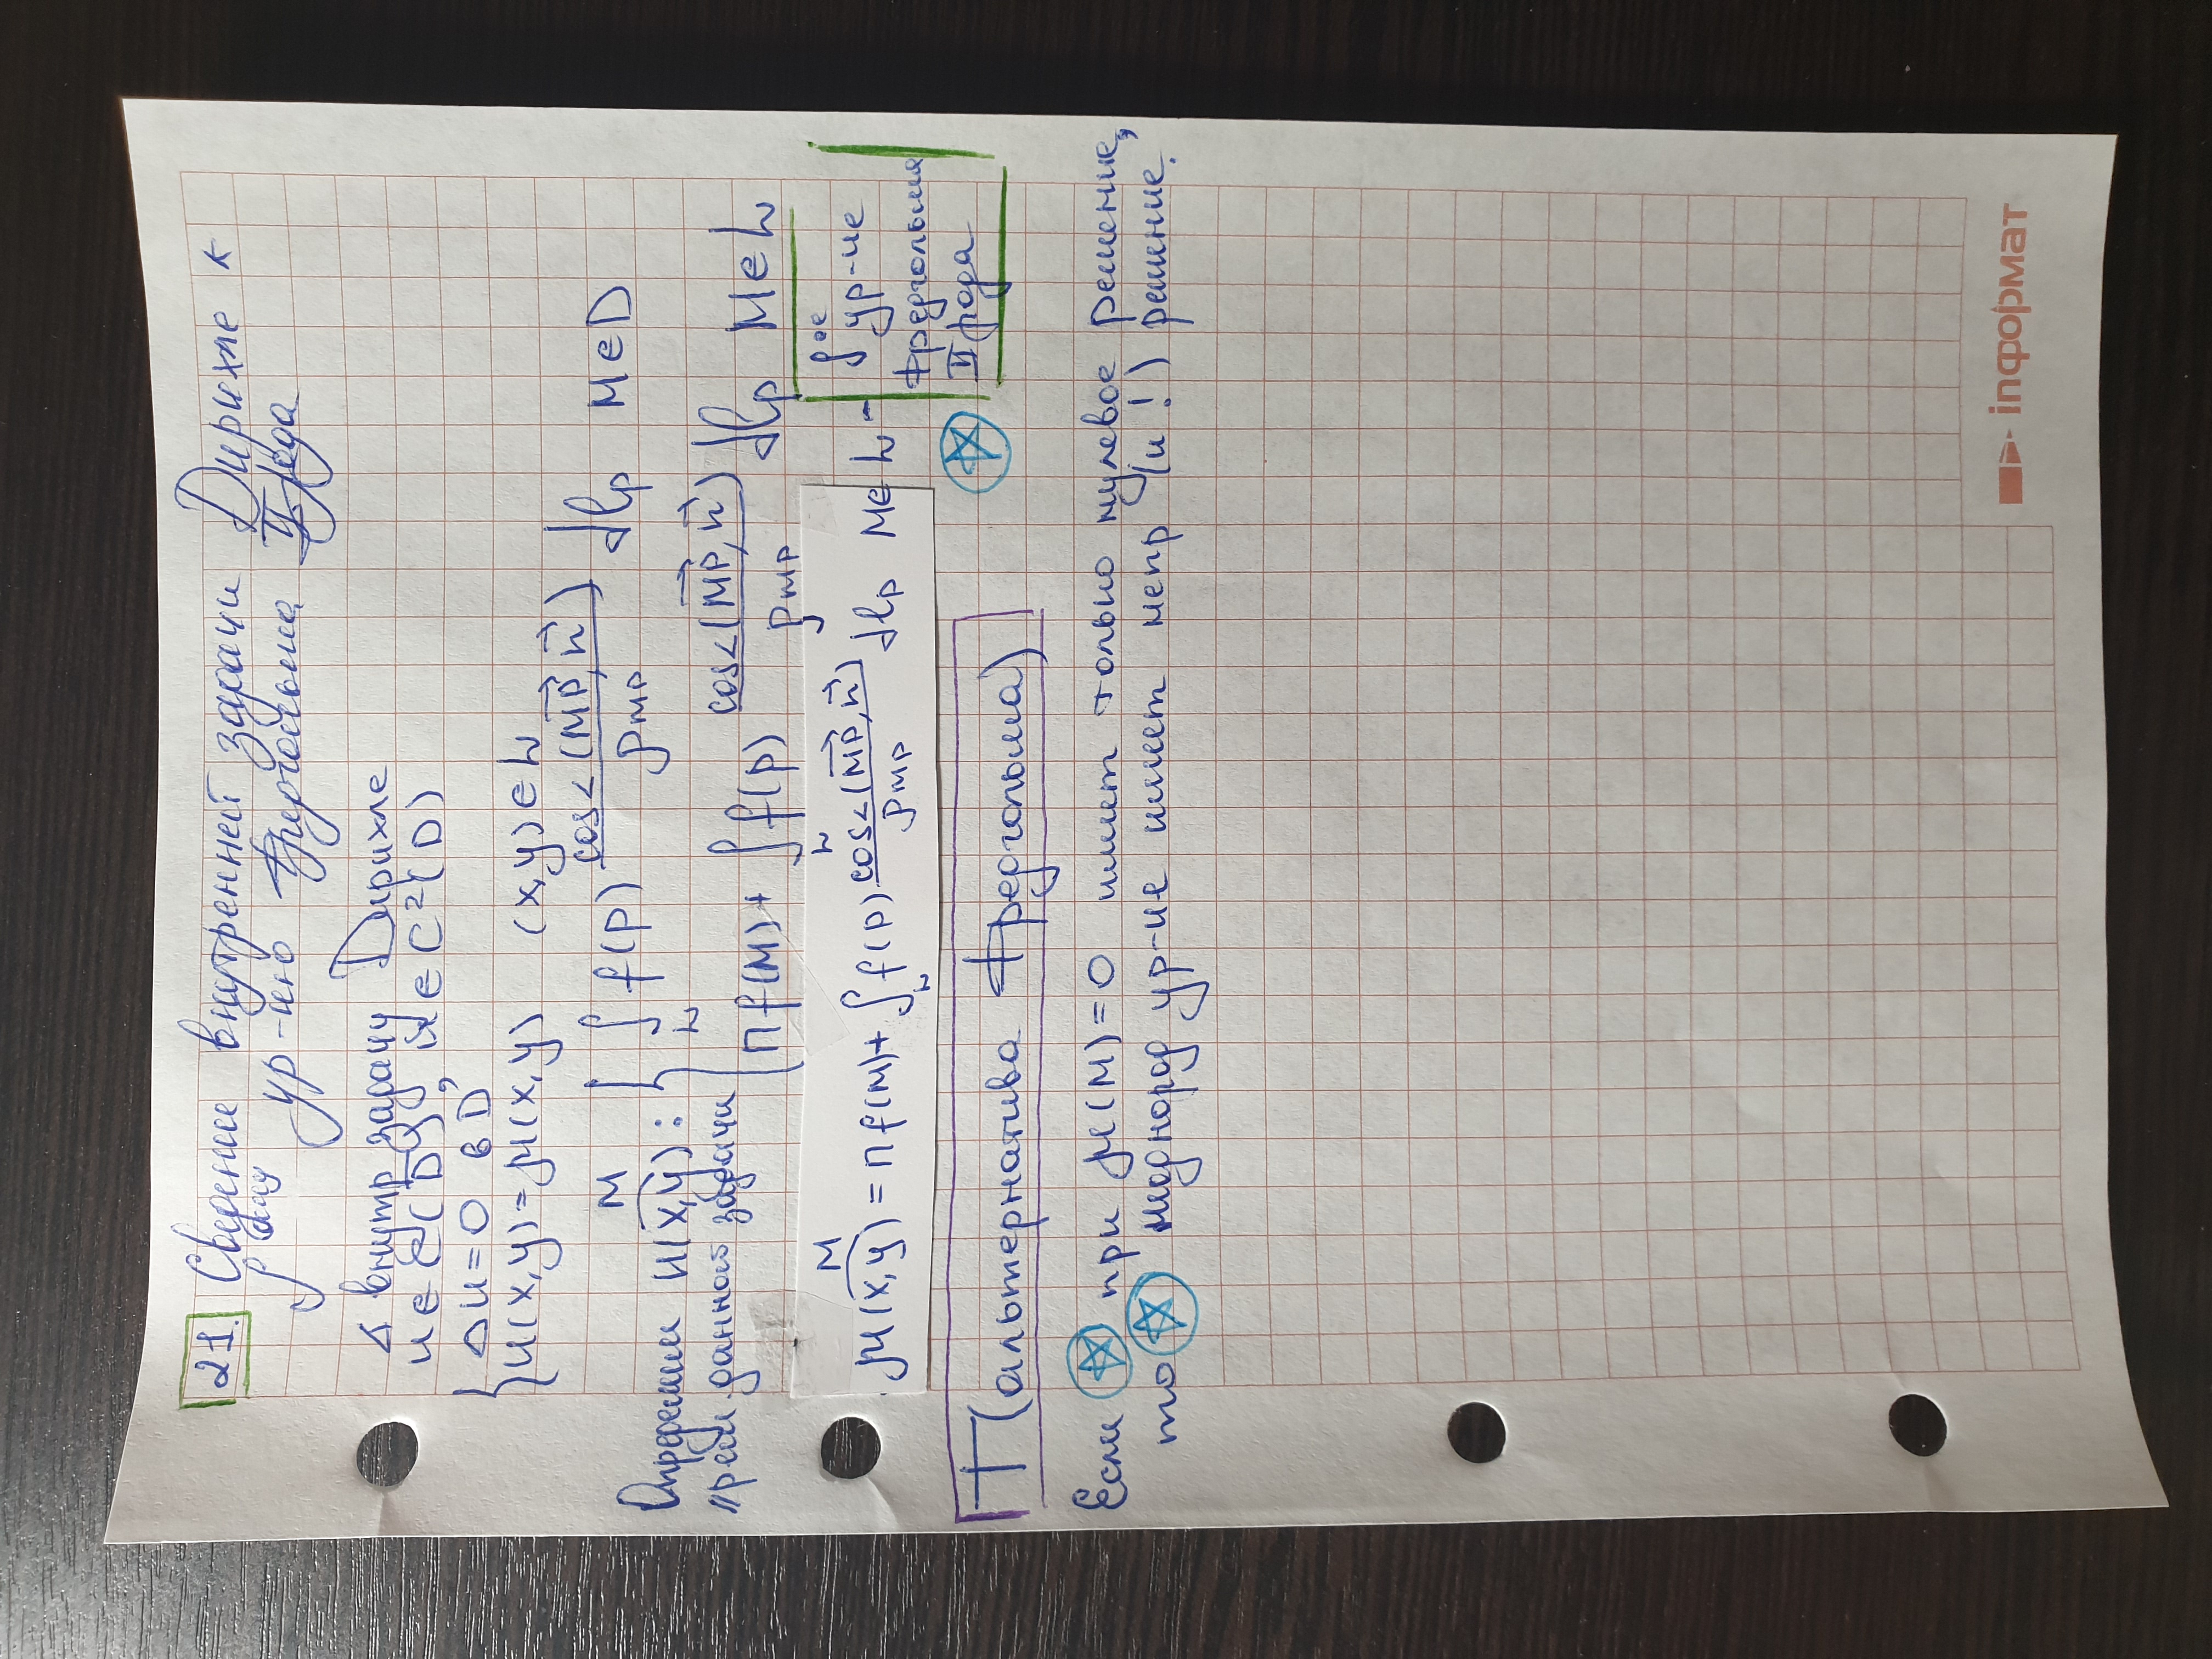 21. Сведение внутренней задачи Дирихле к
∫ому ур-ию Фредгольма II рода
∆ внутр задачу Дирихле
u ∈ C(D̄), u ∈ C²(D)
{ ∆u = 0 в D
u(x,y) = μ(x,y) (x,y) ∈ L
Определим u(x,y): { ∫ f(p) cos<(MP, n) / ρмр dlp M ∈ D
M
L
"реш" данной задачи { π f(M) + ∫ f(p) cos<(MP, n) / ρмр dlp M ∈ L
L
μ(x,y) = π f(M) + ∫ f(p) cos<(MP, n) / ρмр dlp M ∈ L -
M
L
∫ое ур-ие
Фредгольма
II рода
T (альтернатива Фредгольма)
Если ☆ при μ(M) = 0 имеет только нулевое решение,
то ☆ неоднород ур-ие имеет непр (и !) решение.
inформат